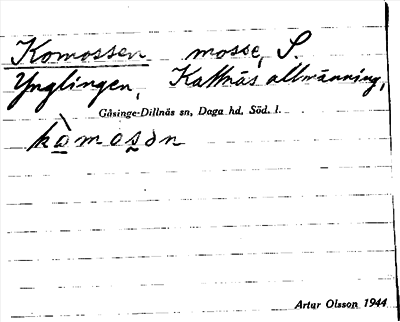 Komossen mosse, S.
Ynglingen, Kattnäs allmänning,
Gåsinge-Dillnäs sn, Daga hd, Söd. l.
kò̱mos̱ən
Artur Olsson 1944